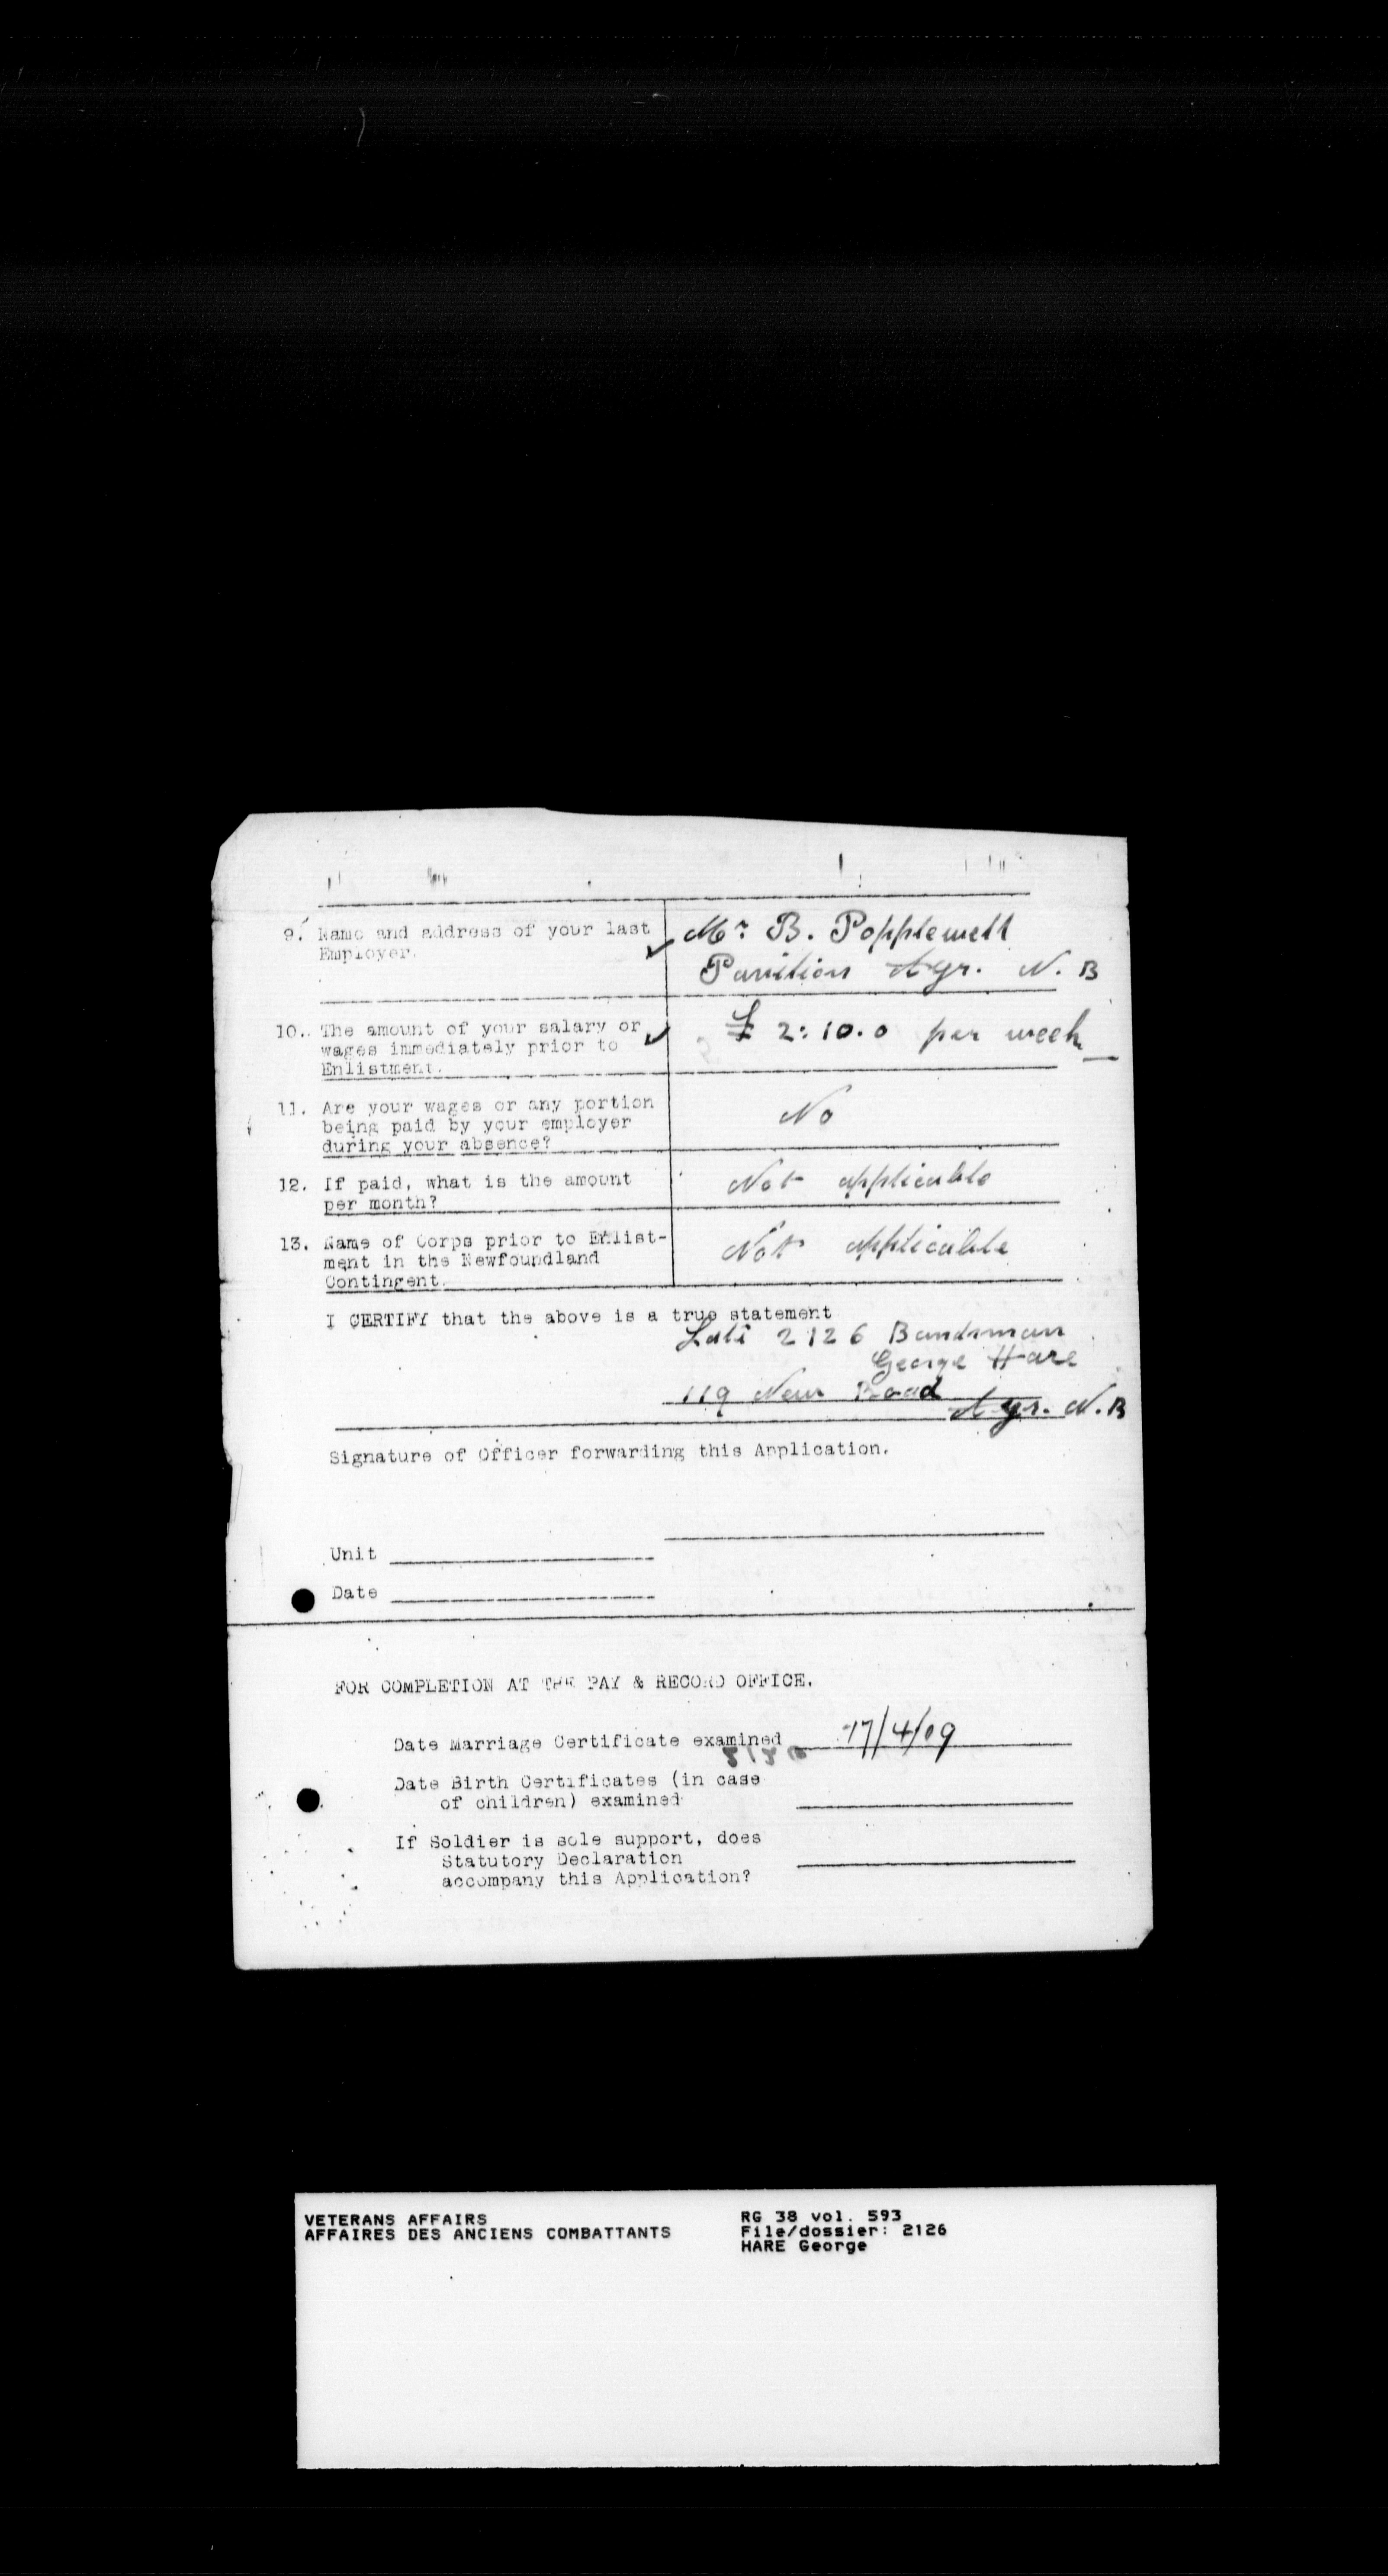 9. Name and address of your last
Employer.
Mr. B. Popplewell
Pavilion Ayr. N. B
10. The amount of your salary or
wages immediately prior to
Enlistment.
£ 2:10.0 per week
11. Are your wages or any portion
being paid by your employer
during your absence?
No
12. If paid, what is the amount
per month?
Not applicable
13. Name of Corps prior to Enlist-
ment in the Newfoundland
Contingent.
Not applicable
I CERTIFY that the above is a true statement
Late 2126 Bandsman
George Hare
119 New Road
Ayr. N.B
Signature of Officer forwarding this Application.
Unit
Date
FOR COMPLETION AT THE PAY & RECORD OFFICE.
Date Marriage Certificate examined 17/4/09
Date Birth Certificates (in case
of children) examined
If Soldier is sole support, does
Statutory Declaration
accompany this Application?
VETERANS AFFAIRS
AFFAIRES DES ANCIENS COMBATTANTS
RG 38 vol. 593
File/dossier: 2126
HARE George